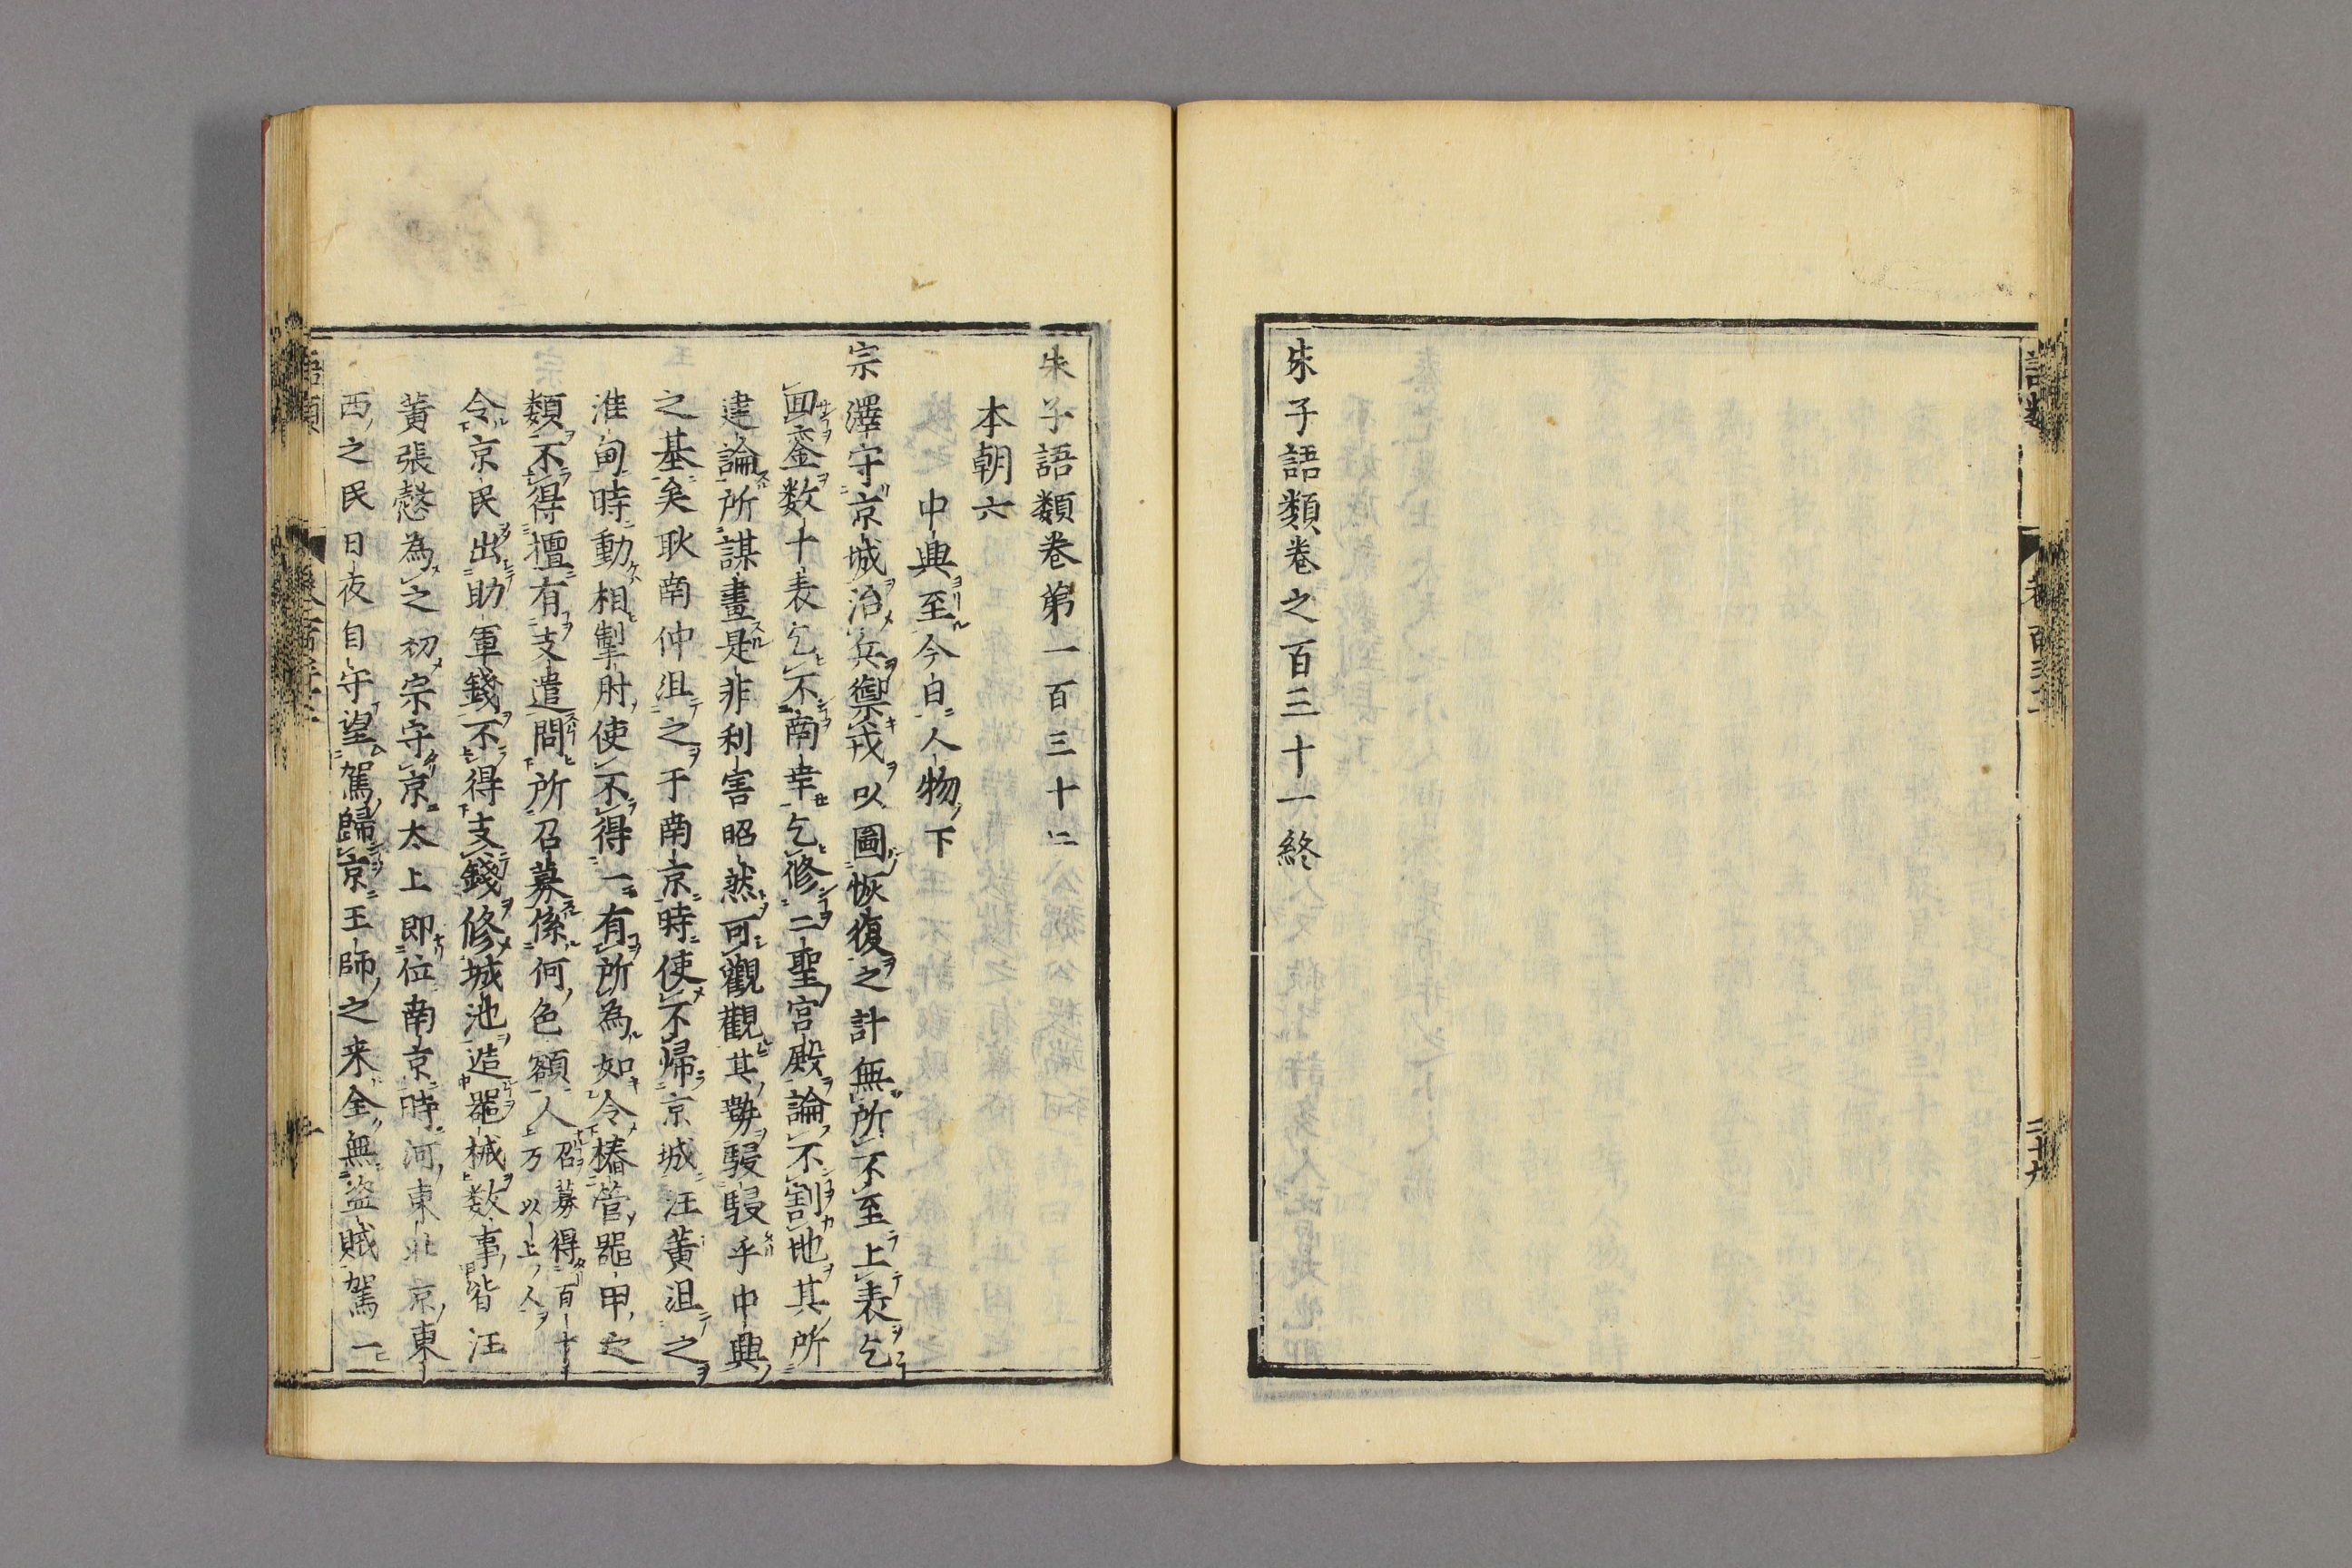 朱子語類卷之百三十一終
二十九
朱子語類卷第一百三十二
本朝六
中興至今日人物下
宗澤守京城治兵禦戎以圖恢復之計無所不至上表乞
回鑾数十表乞不南幸乞修二聖宮殿論不割地其所
建論所謀畫是非利害昭然可觀觀其勢駸駸乎中興
之基矣耿南仲沮之于南京時使不帰京城汪黃沮之
淮甸時動相掣肘使不得一有所為如令樁管器甲之
類不得擅有支遣問所召募係何色額人召募得百十
万以上人
令京民出助軍錢不得支錢修城池造器械数事皆汪
黃張愨為之初宗守京太上即位南京時河東北京東
西之民日夜自守望駕歸京王師之来全無盜賊駕一